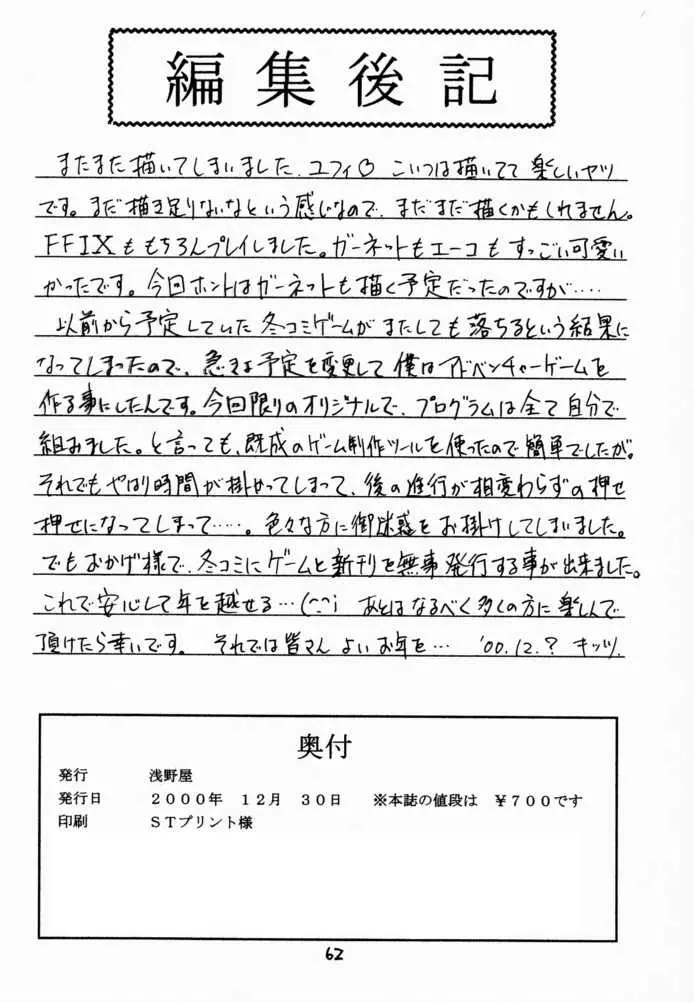 編集後記
またまた描いてしまいました、ユフィ♡ こいつは描いてて楽しいヤツ
です。まだ描き足りないなという感じなので、まだまだ描くかもしれません。
FFIXももちろんプレイしました。ガーネットもエーコもすっごい可愛い
かったです。今回ホントはガーネットも描く予定だったのですが‥‥
以前から予定していた冬コミゲームがまたしても落ちるという結果に
なってしまったので、急きょ予定を変更して僕はアドベンチャーゲームを
作る事にしたんです。今回限りのオリジナルで、プログラムは全て自分で
組みました。と言っても、既成のゲーム制作ツールを使ったので簡単でしたが。
それでもやはり時間が掛かってしまって、後の進行が相変わらずの押せ
押せになってしまって‥‥。色々な方に御迷惑をお掛けしてしまいました。
でもおかげ様で、冬コミにゲームと新刊を無事発行する事が出来ました。
これで安心して年を越せる…(^^) あとはなるべく多くの方に楽しんで
頂けたら幸いです。 それでは皆さんよいお年を… '00.12.? キッツ.
奥付
発行 浅野屋
発行日 2000年 12月 30日 ※本誌の値段は ¥700です
印刷 STプリント様
62